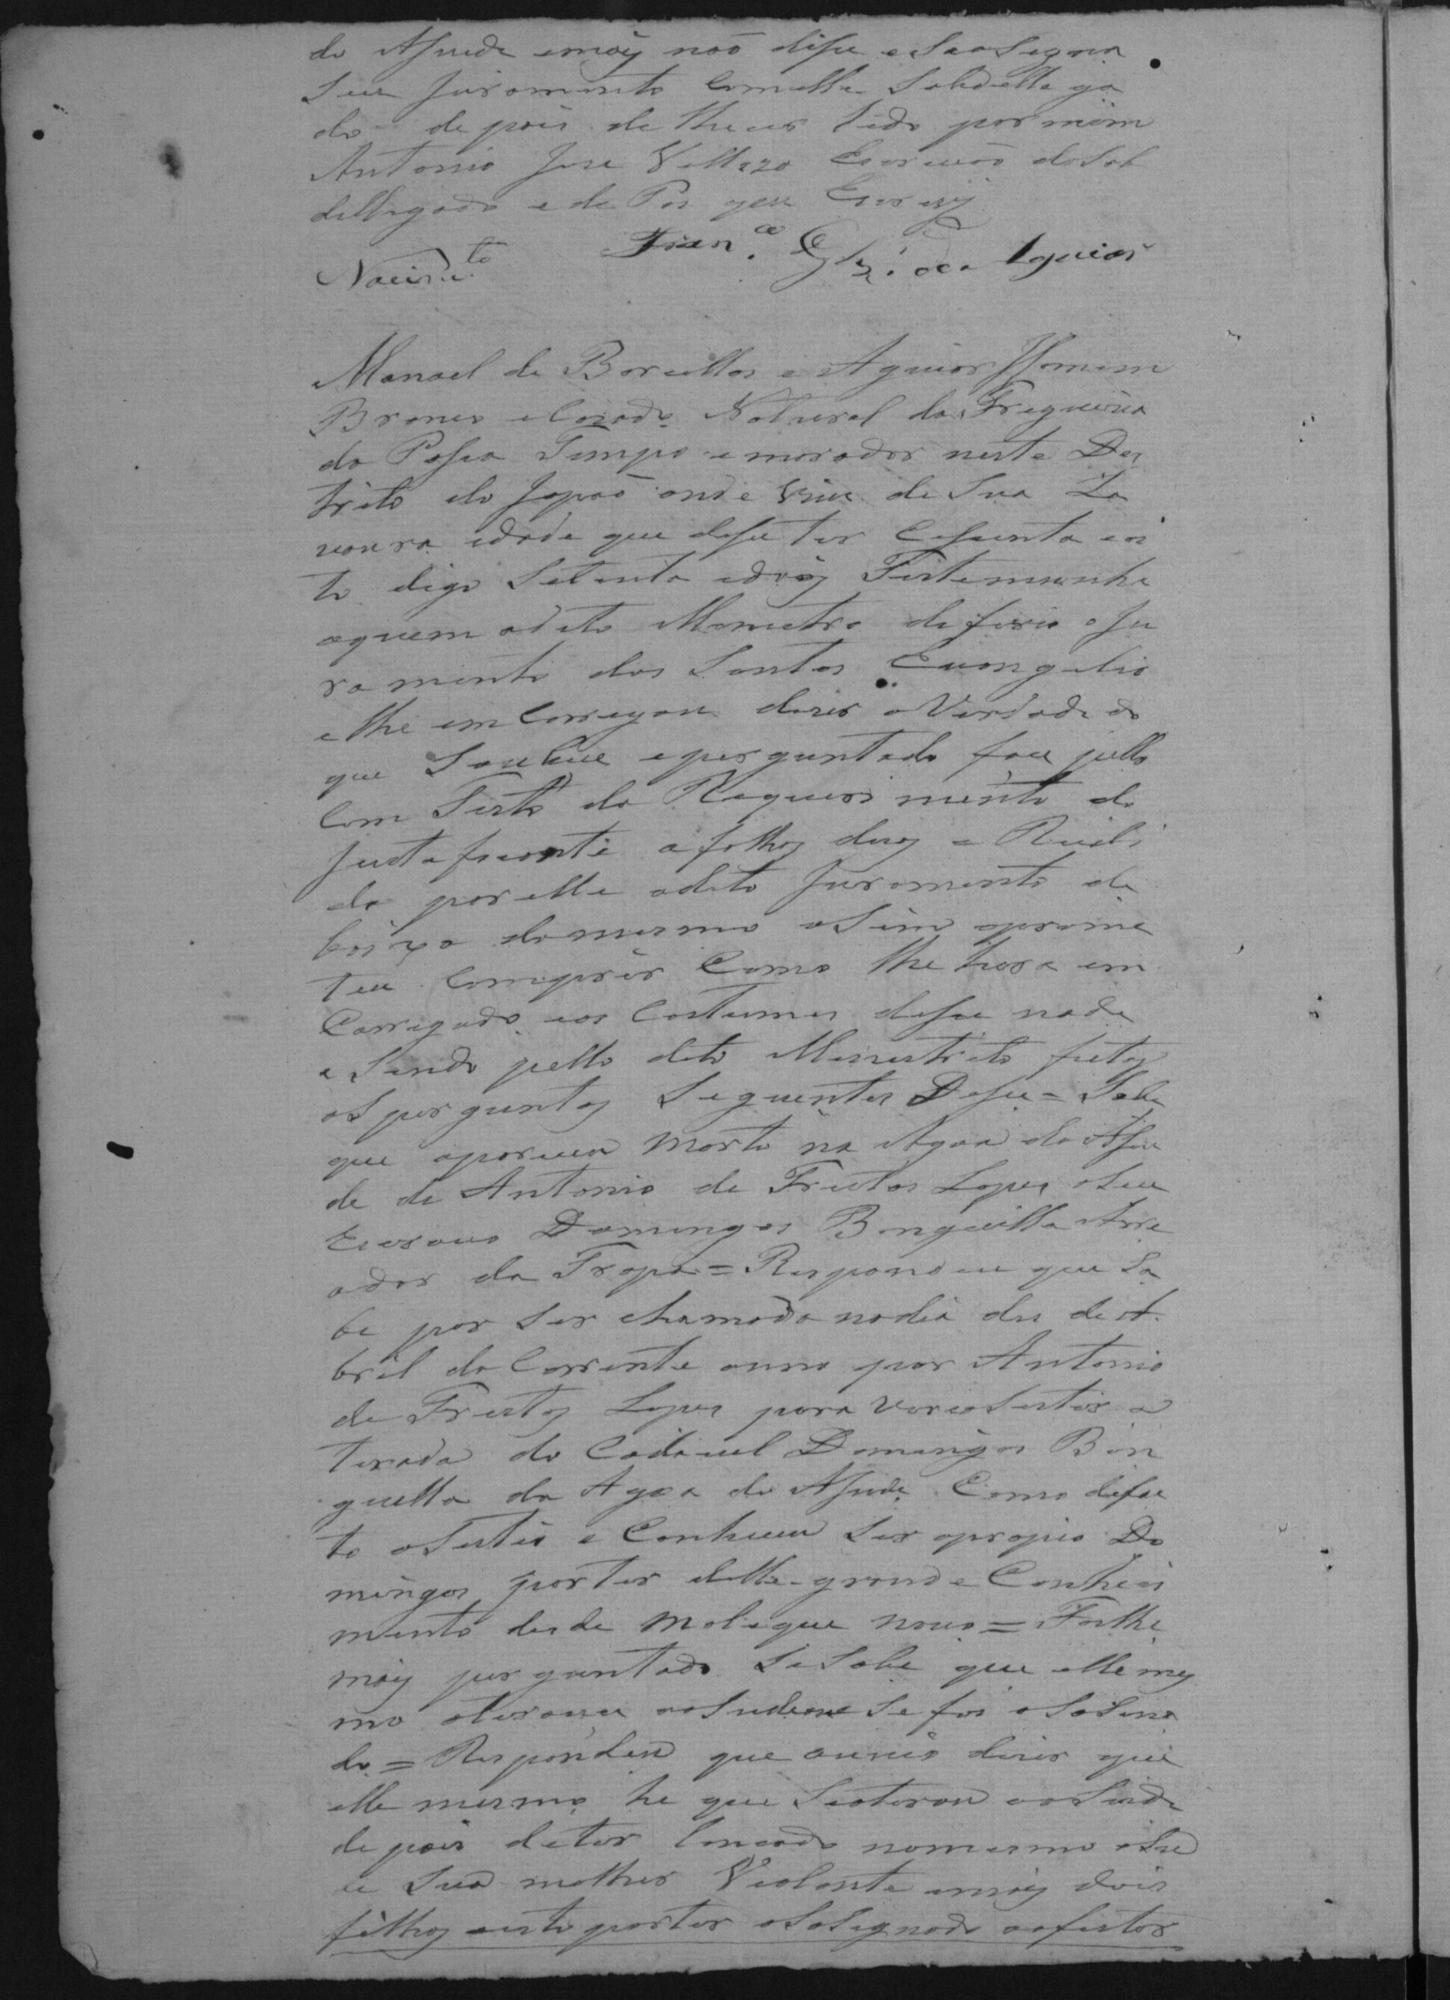 do Asude emais não dise e Saasegna
Seu Juramento Comelle Subdellega
do depois delhe ser lido por mim
Antonio Jose Vellozo Escrivão do Sob
dellegado e de Pas que Escrevij
Nacim.to Fran.co da Aguiar
Manoel de Barcellos e Aguiar Homem
Branco e Cazado Natural da Freguezia
da Pasa Tempo e morador neste Des
trito do Japaõ onde Vive de Sua La
voura idade que dise ter Cesenta eoi
to digo Setenta edois Testemunha
aquem odito Menistro deferio o Ju
ramento dos Santos Evangelio
e lhe em Carregou diser a Verdade do
que Soubese eperguntado foce pello
Com Testo do Requeri mento do
Justeficante afolhas duas e Recebi
do por elle odito Juramento de
baixo domesmo asim aprome
teu Comprir Como lhe hera em
Carregado eos Costumes dise nada
e Sendo pello dito Menistrito feitas
as perguntas Seguentes Dise = Sabe
que apareceu morto na Agoa do Asu
de de Antonio de Freitas Lopes oseu
Escravo Domingos Benguilla Arre
ador da Tropa = Respondeu que Sa
be por Ser chamado nodia des de A
bril do Corrente anno por Antonio
de Freitas Lopes para ver easestir a
terada do Cadavel Domingos Ben
guella da Agoa do Asude Como defac
to asestio e Conheceu Ser oproprio Do
mingos por ter delle grande Conheci
mento desde moleque novo = Foilhe
mais perguntado Se Sabe que elle mes
mo atirouce ao Sude ou Se foi asasina
do = Respondeu que ouvio diser que
elle mesmo he que Seaterou ao Sude
depois deter Lancado nomesmo aSu
de Sua molher Violante emais dois
filhos eisto por ter asasignado aofeitor